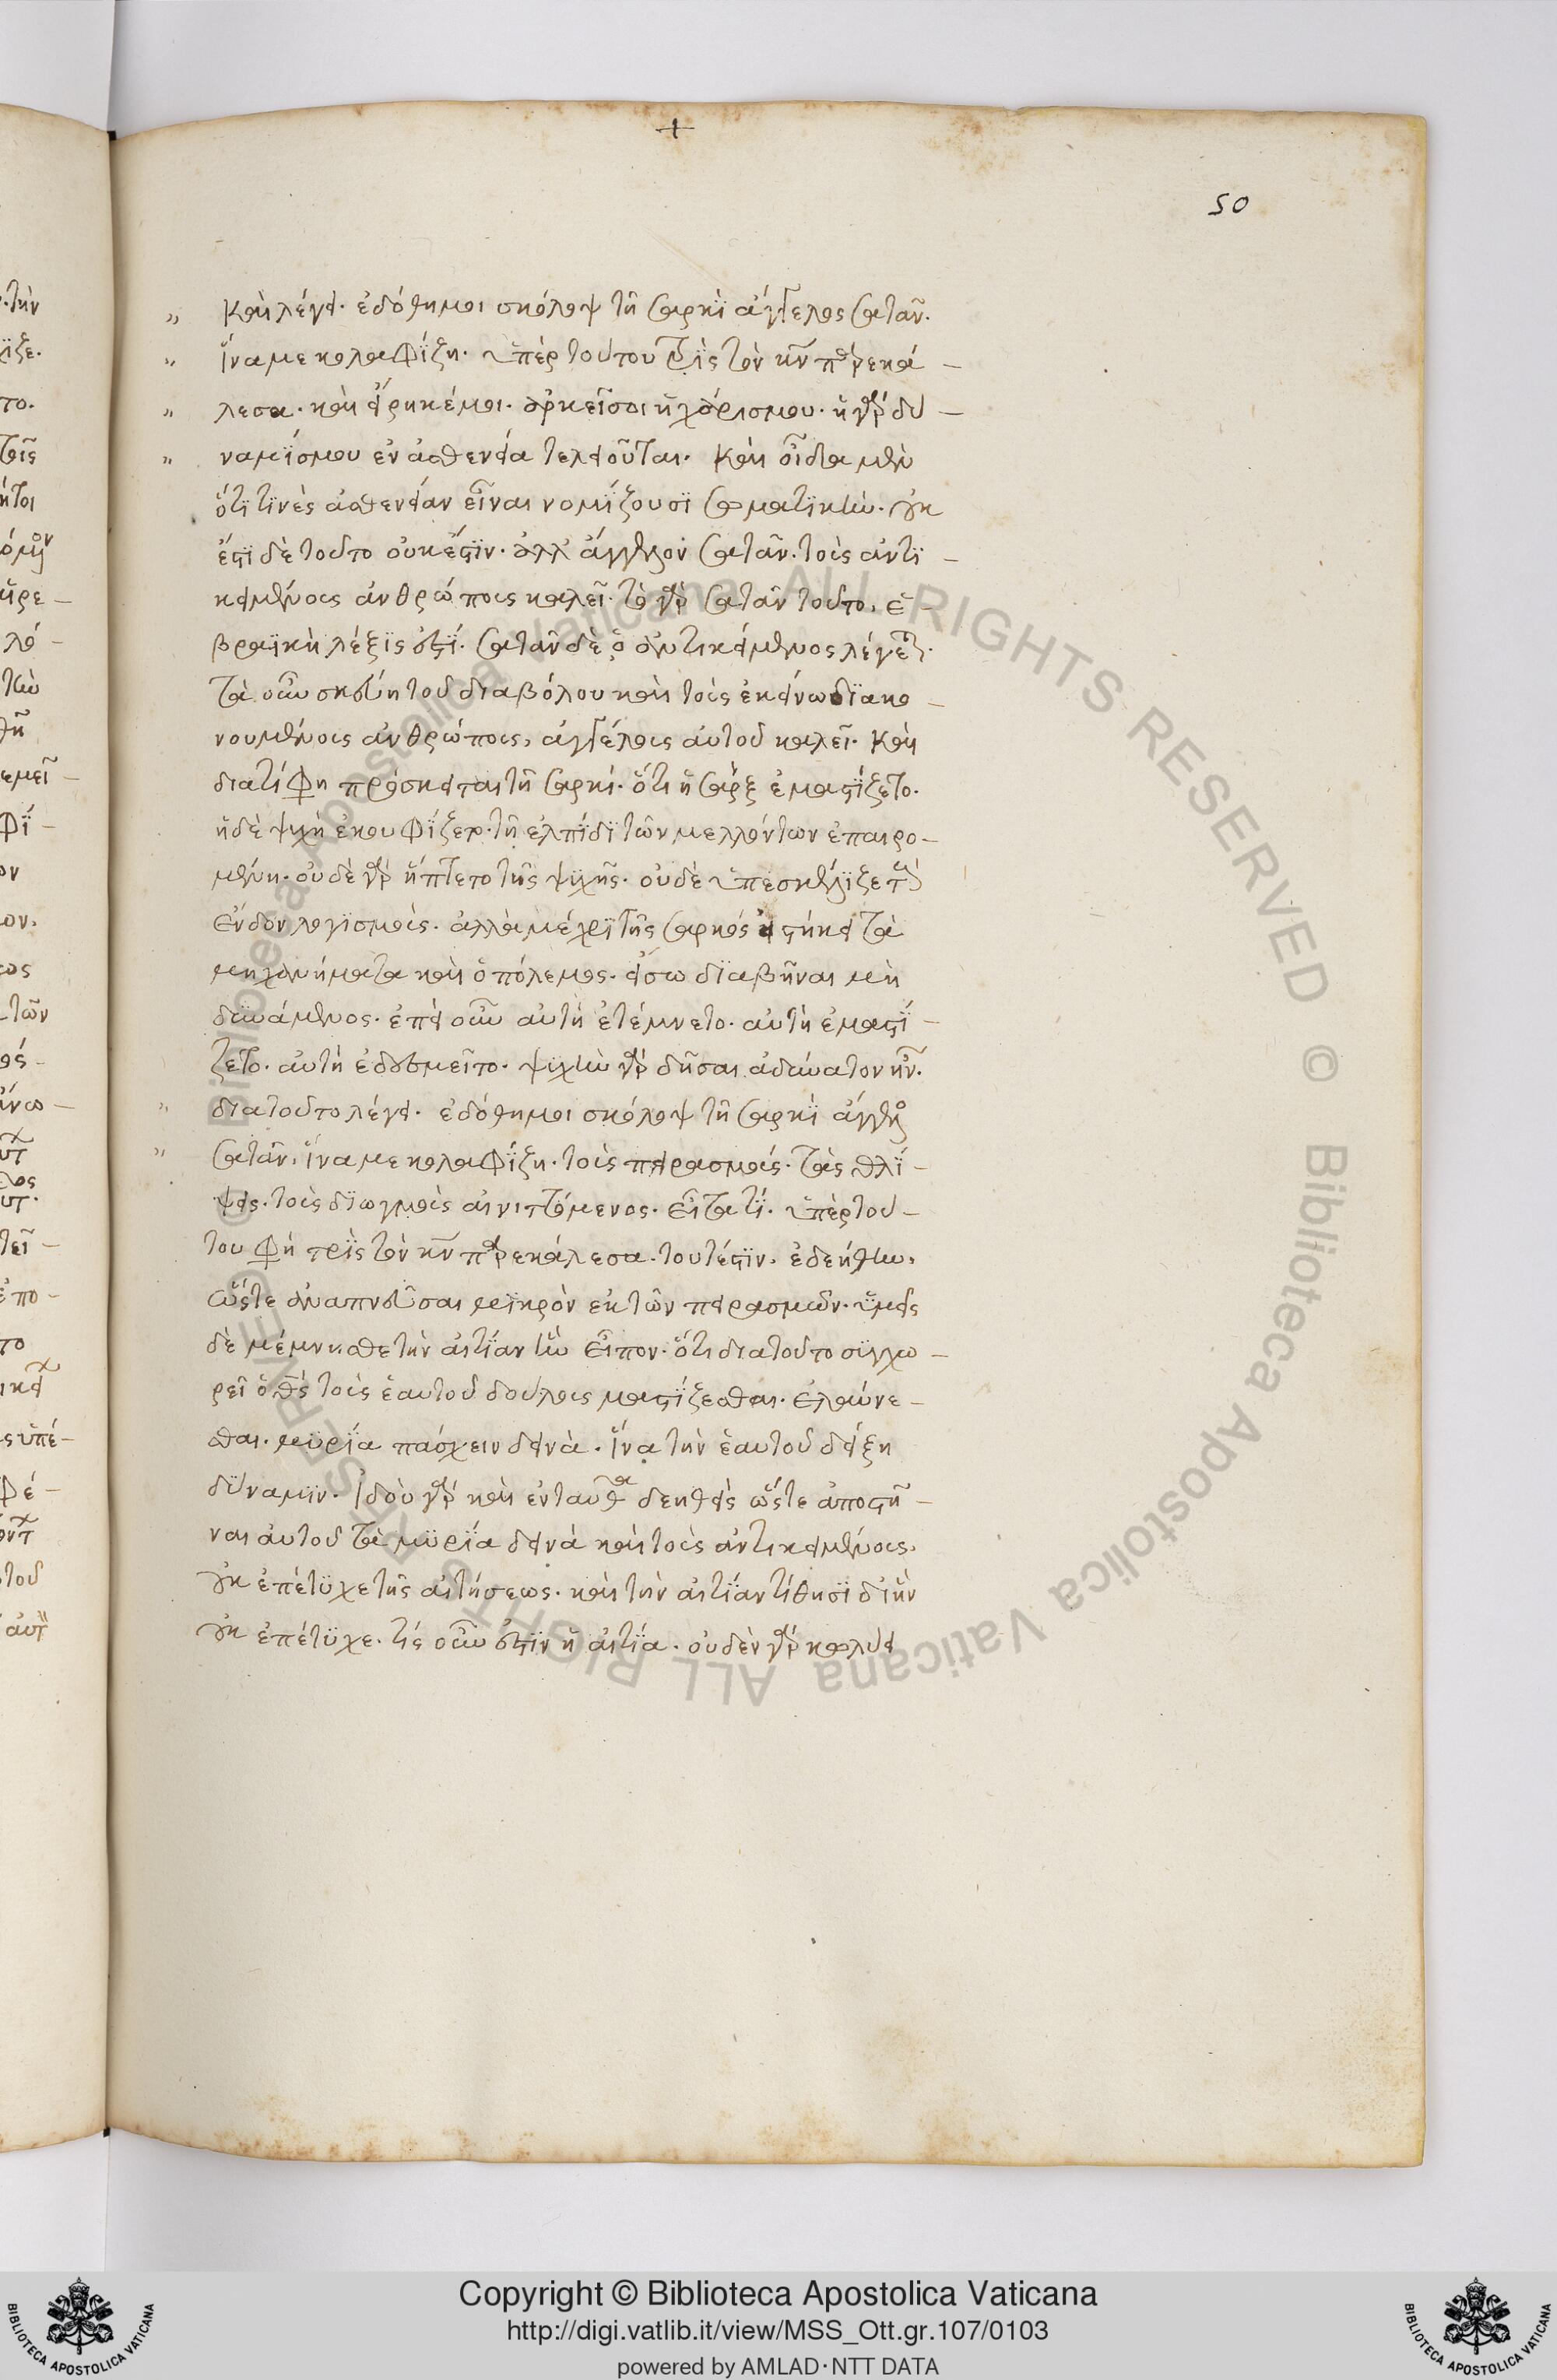 +
50
καὶ λέγει· ἐδόθη μοι σκόλοψ τῆ σαρκὶ ἄγγελος σατᾶν·
ἵνα με κολαφίζη· ὑπὲρ τούτου τρὶς τὸν κν παρεκά –
λεσα· καὶ εἴρηκέ μοι· ἀρκεῖ σοι ἡ χάρις μου· ἡ γὰρ δύ –
ναμίς μου ἐν ἀσθενεία τελειοῦται· καὶ οἶδα μὲν
ὅτι τινὲς ἀσθενείαν εἶναι νομίζουσι σωματικήν· οὐκ
ἔστι δὲ τοῦτο οὐκ ἔστιν· ἀλλ' ἄγγελον σατᾶν· τοῖς ἀντι –
κειμένοις ἀνθρώποις καλεῖ· τὸ γὰρ σατᾶν τοῦτο, ἑ –
βραϊκὴ λέξις ἐστί· σατᾶν δὲ ὁ ἀντικείμενος λέγεται·
τὰ οὖν σκεύη τοῦ διαβόλου καὶ τοῖς ἐκείνω διακο –
νουμένοις ἀνθρώποις, ἀγγέλοις αὐτοῦ καλεῖ· καὶ
διατί φη πρόσκειται τῆ σαρκί· ὅτι ἡ σὰρξ ἐμαστίζετο·
ἡ δὲ ψυχὴ ἐκουφίζετο· τῆ ἐλπίδι τῶν μελλόντων ἐπαιρο –
μένη· οὐδὲ γὰρ ἥπτετο τῆς ψυχῆς· οὐδὲ ὑπεσκέλιζε τοὺς
ἔνδον λογισμοὺς· ἀλλὰ μέχρι τῆς σαρκός εἱστήκει τὰ
μηχανήματα καὶ ὁ πόλεμος· εἴσω διαβῆναι μὴ
δυνάμενος· ἐπεὶ οὖν αὐτὴ ἐτέμνετο· αὐτὴ ἐμαστί –
ζετο· αὐτὴ ἐδεσμεῖτο· ψυχὴν γὰρ δῆσαι ἀδύνατον ἦν·
διατοῦτο λέγει· ἐδόθη μοι σκόλοψ τῆ σαρκὶ ἄγγελος
σατᾶν, ἵνα με κολαφίζη· τοὺς πειρασμούς· τὰς θλί –
ψεις· τοὺς διωγμοὺς αἰνιττόμενος· εἶτα τί· ὑπὲρ τού –
του φη τρὶς τὸν κν παρεκάλεσα· τουτέστιν, ἐδεήθην,
ὥστε ἀναπνεῦσαι μικρὸν ἐκ τῶν πειρασμῶν· ὑμεῖς
δὲ μέμνησθε τὴν αἰτίαν ἣν εἶπον· ὅτι διατοῦτο συγχω –
ρεῖ ὁ θς τοῖς ἑαυτοῦ δούλοις μαστίζεσθαι· ἐλαύνε –
σθαι· μυρία πάσχειν δεινὰ· ἵνα τὴν ἑαυτοῦ δείξη
δύναμιν· ἰδοὺ γὰρ καὶ ἐνταῦθα δεηθεὶς ὥστε ἀποστῆ –
ναι αὐτοῦ τὰ μυρία δεινὰ καὶ τοὺς ἀντικειμένους,
οὐκ ἐπέτυχε τῆς αἰτήσεως· καὶ τὴν αἰτίαν τίθησι δι' ἣν
οὐκ ἐπέτυχε· τίς οὖν ἐστιν ἡ αἰτία· οὐδὲν γὰρ κωλύει
Copyright © Biblioteca Apostolica Vaticana
http://digi.vatlib.it/view/MSS_Ott.gr.107/0103
powered by AMLAD·NTT DATA
BIBLIOTECA APOSTOLICA VATICANA
BIBLIOTECA APOSTOLICA VATICANA
© Biblioteca Apostolica Vaticana ALL RIGHTS RESERVED © Biblioteca Apostolica Vaticana ALL RIGHTS RESERVED